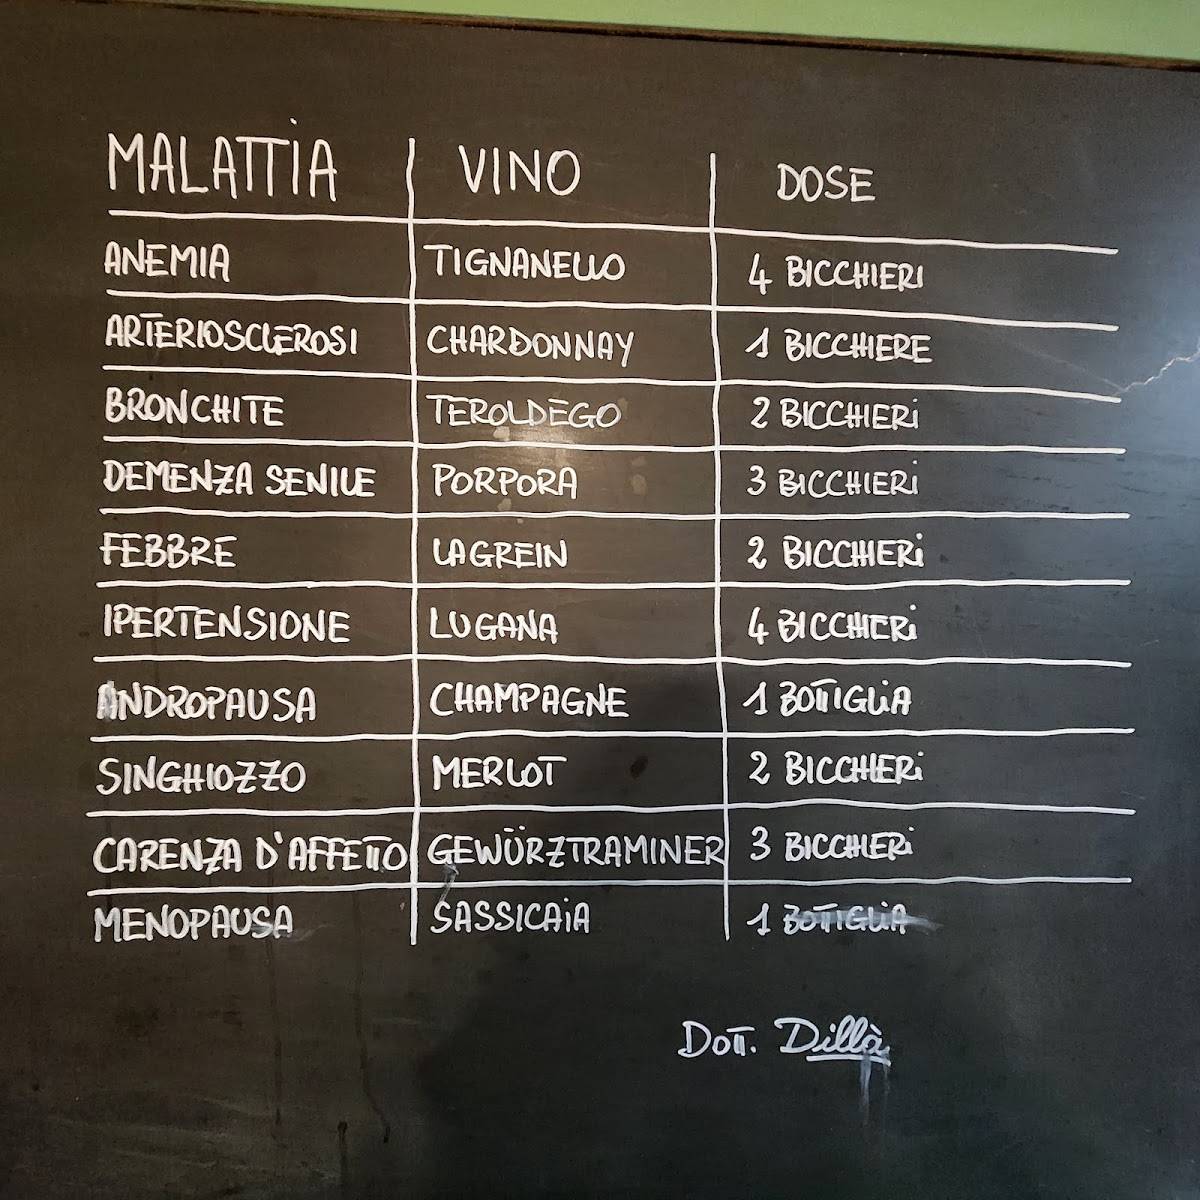 MALATTIA VINO DOSE
ANEMIA TIGNANELLO 4 BICCHIERI
ARTERIOSCLEROSI CHARDONNAY 1 BICCHIERE
BRONCHITE TEROLDEGO 2 BICCHIERI
DEMENZA SENILE PORPORA 3 BICCHIERI
FEBBRE LAGREIN 2 BICCHIERI
IPERTENSIONE LUGANA 4 BICCHIERI
ANDROPAUSA CHAMPAGNE 1 BOTTIGLIA
SINGHIOZZO MERLOT 2 BICCHIERI
CARENZA D'AFFETTO GEWÜRZTRAMINER 3 BICCHIERI
MENOPAUSA SASSICAIA 1 BOTTIGLIA
DOTT. Dillà